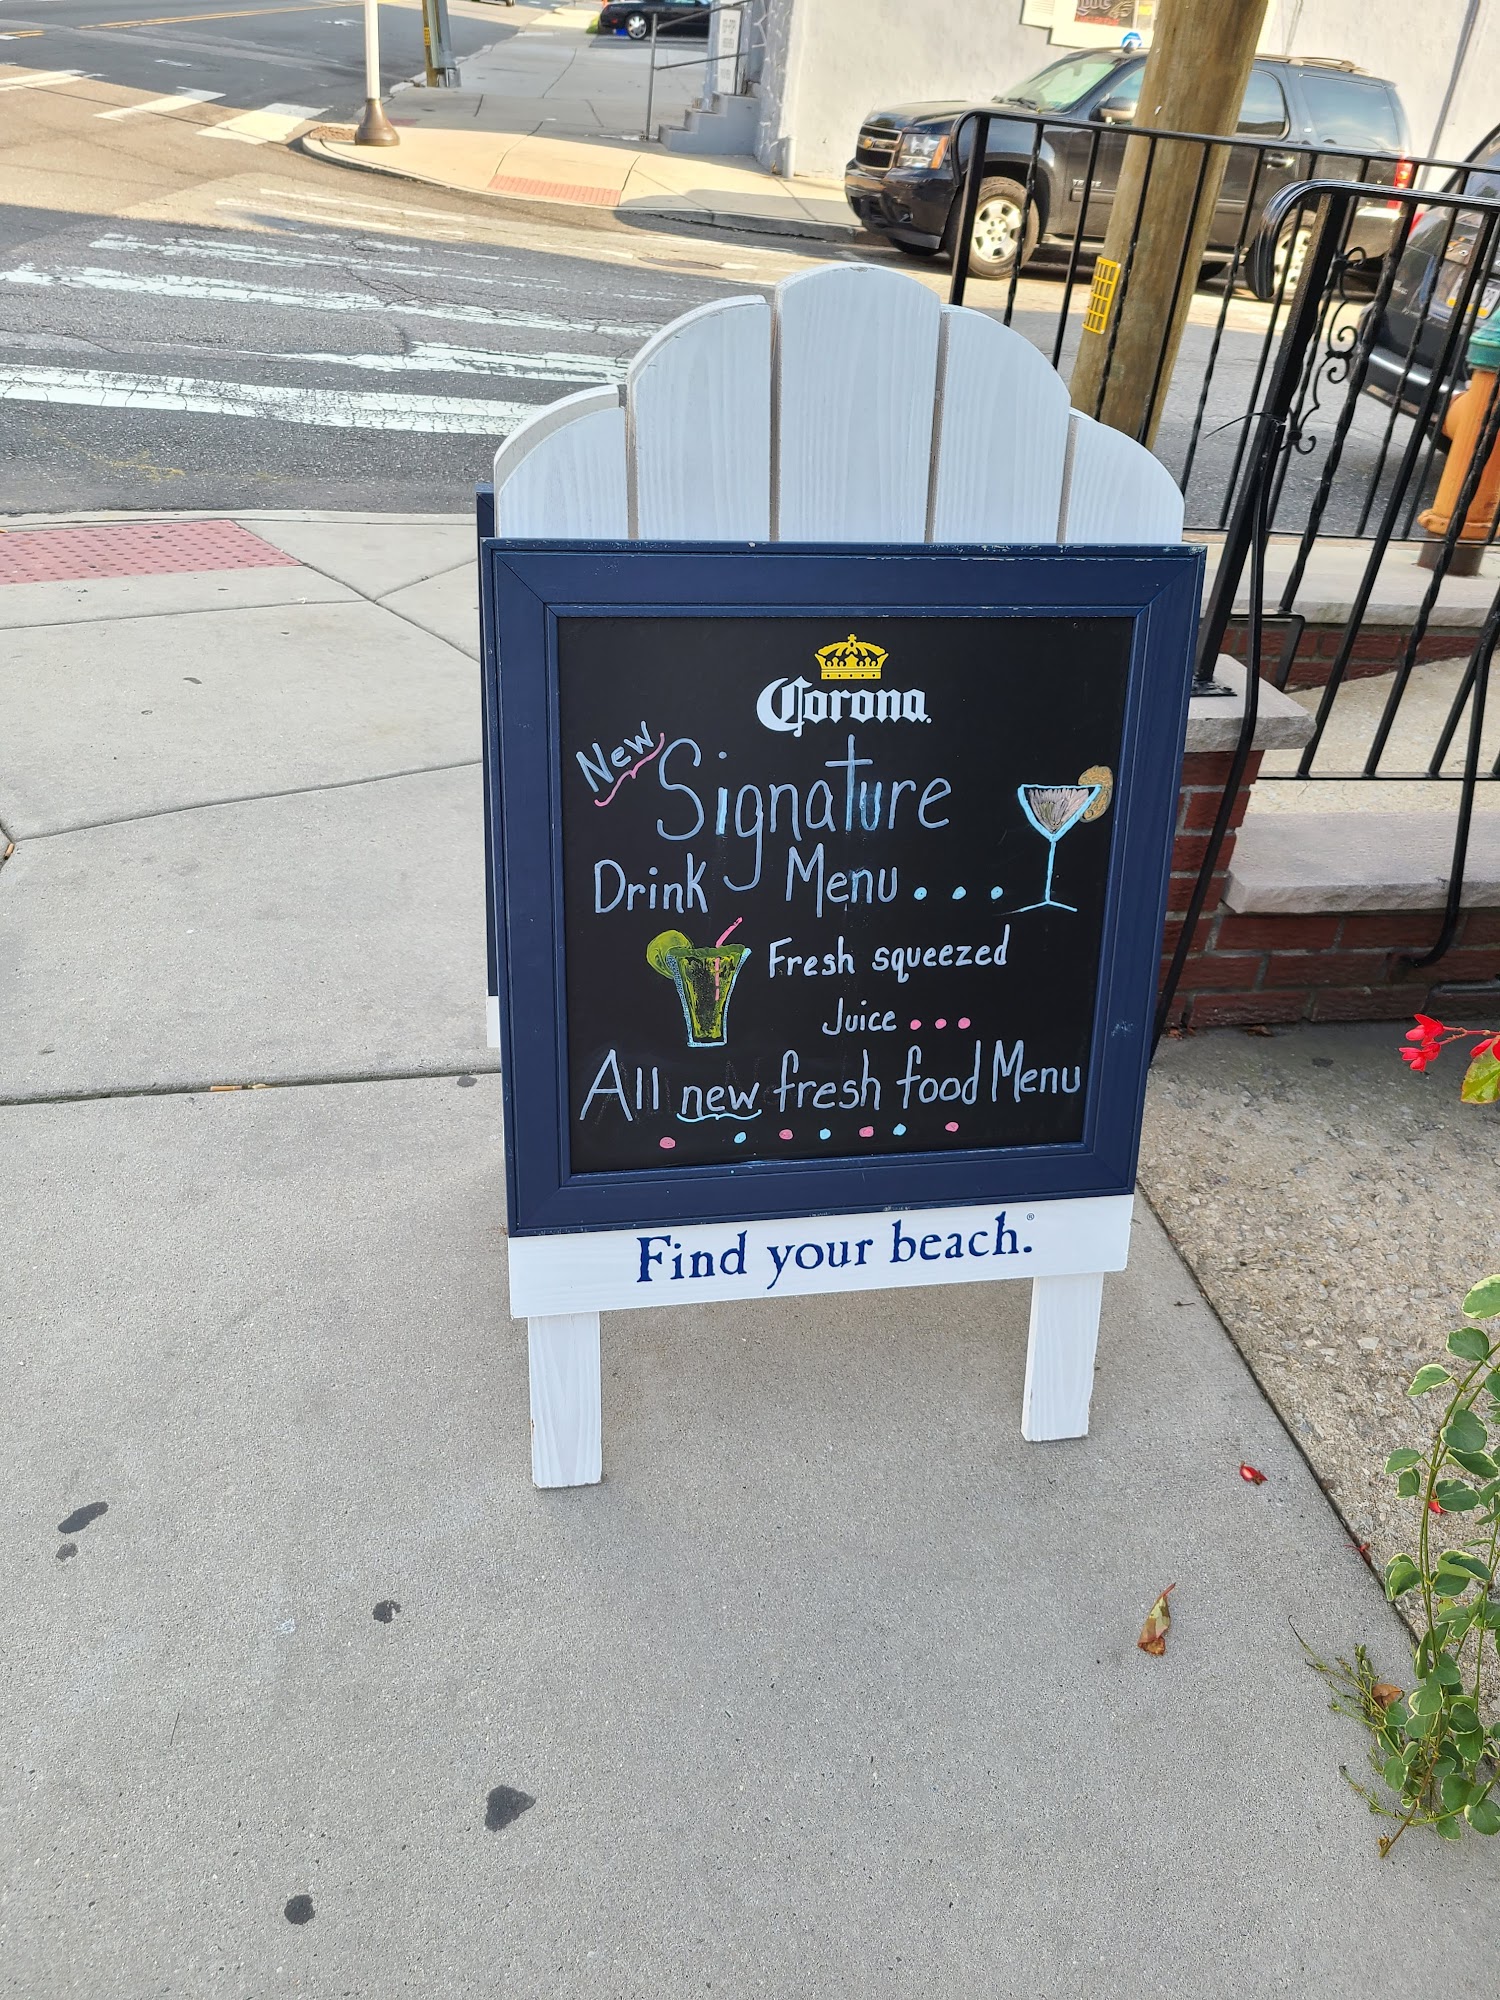 Corona
New Signature
Drink Menu...
Fresh squeezed
Juice...
All new fresh food Menu
Find your beach.®